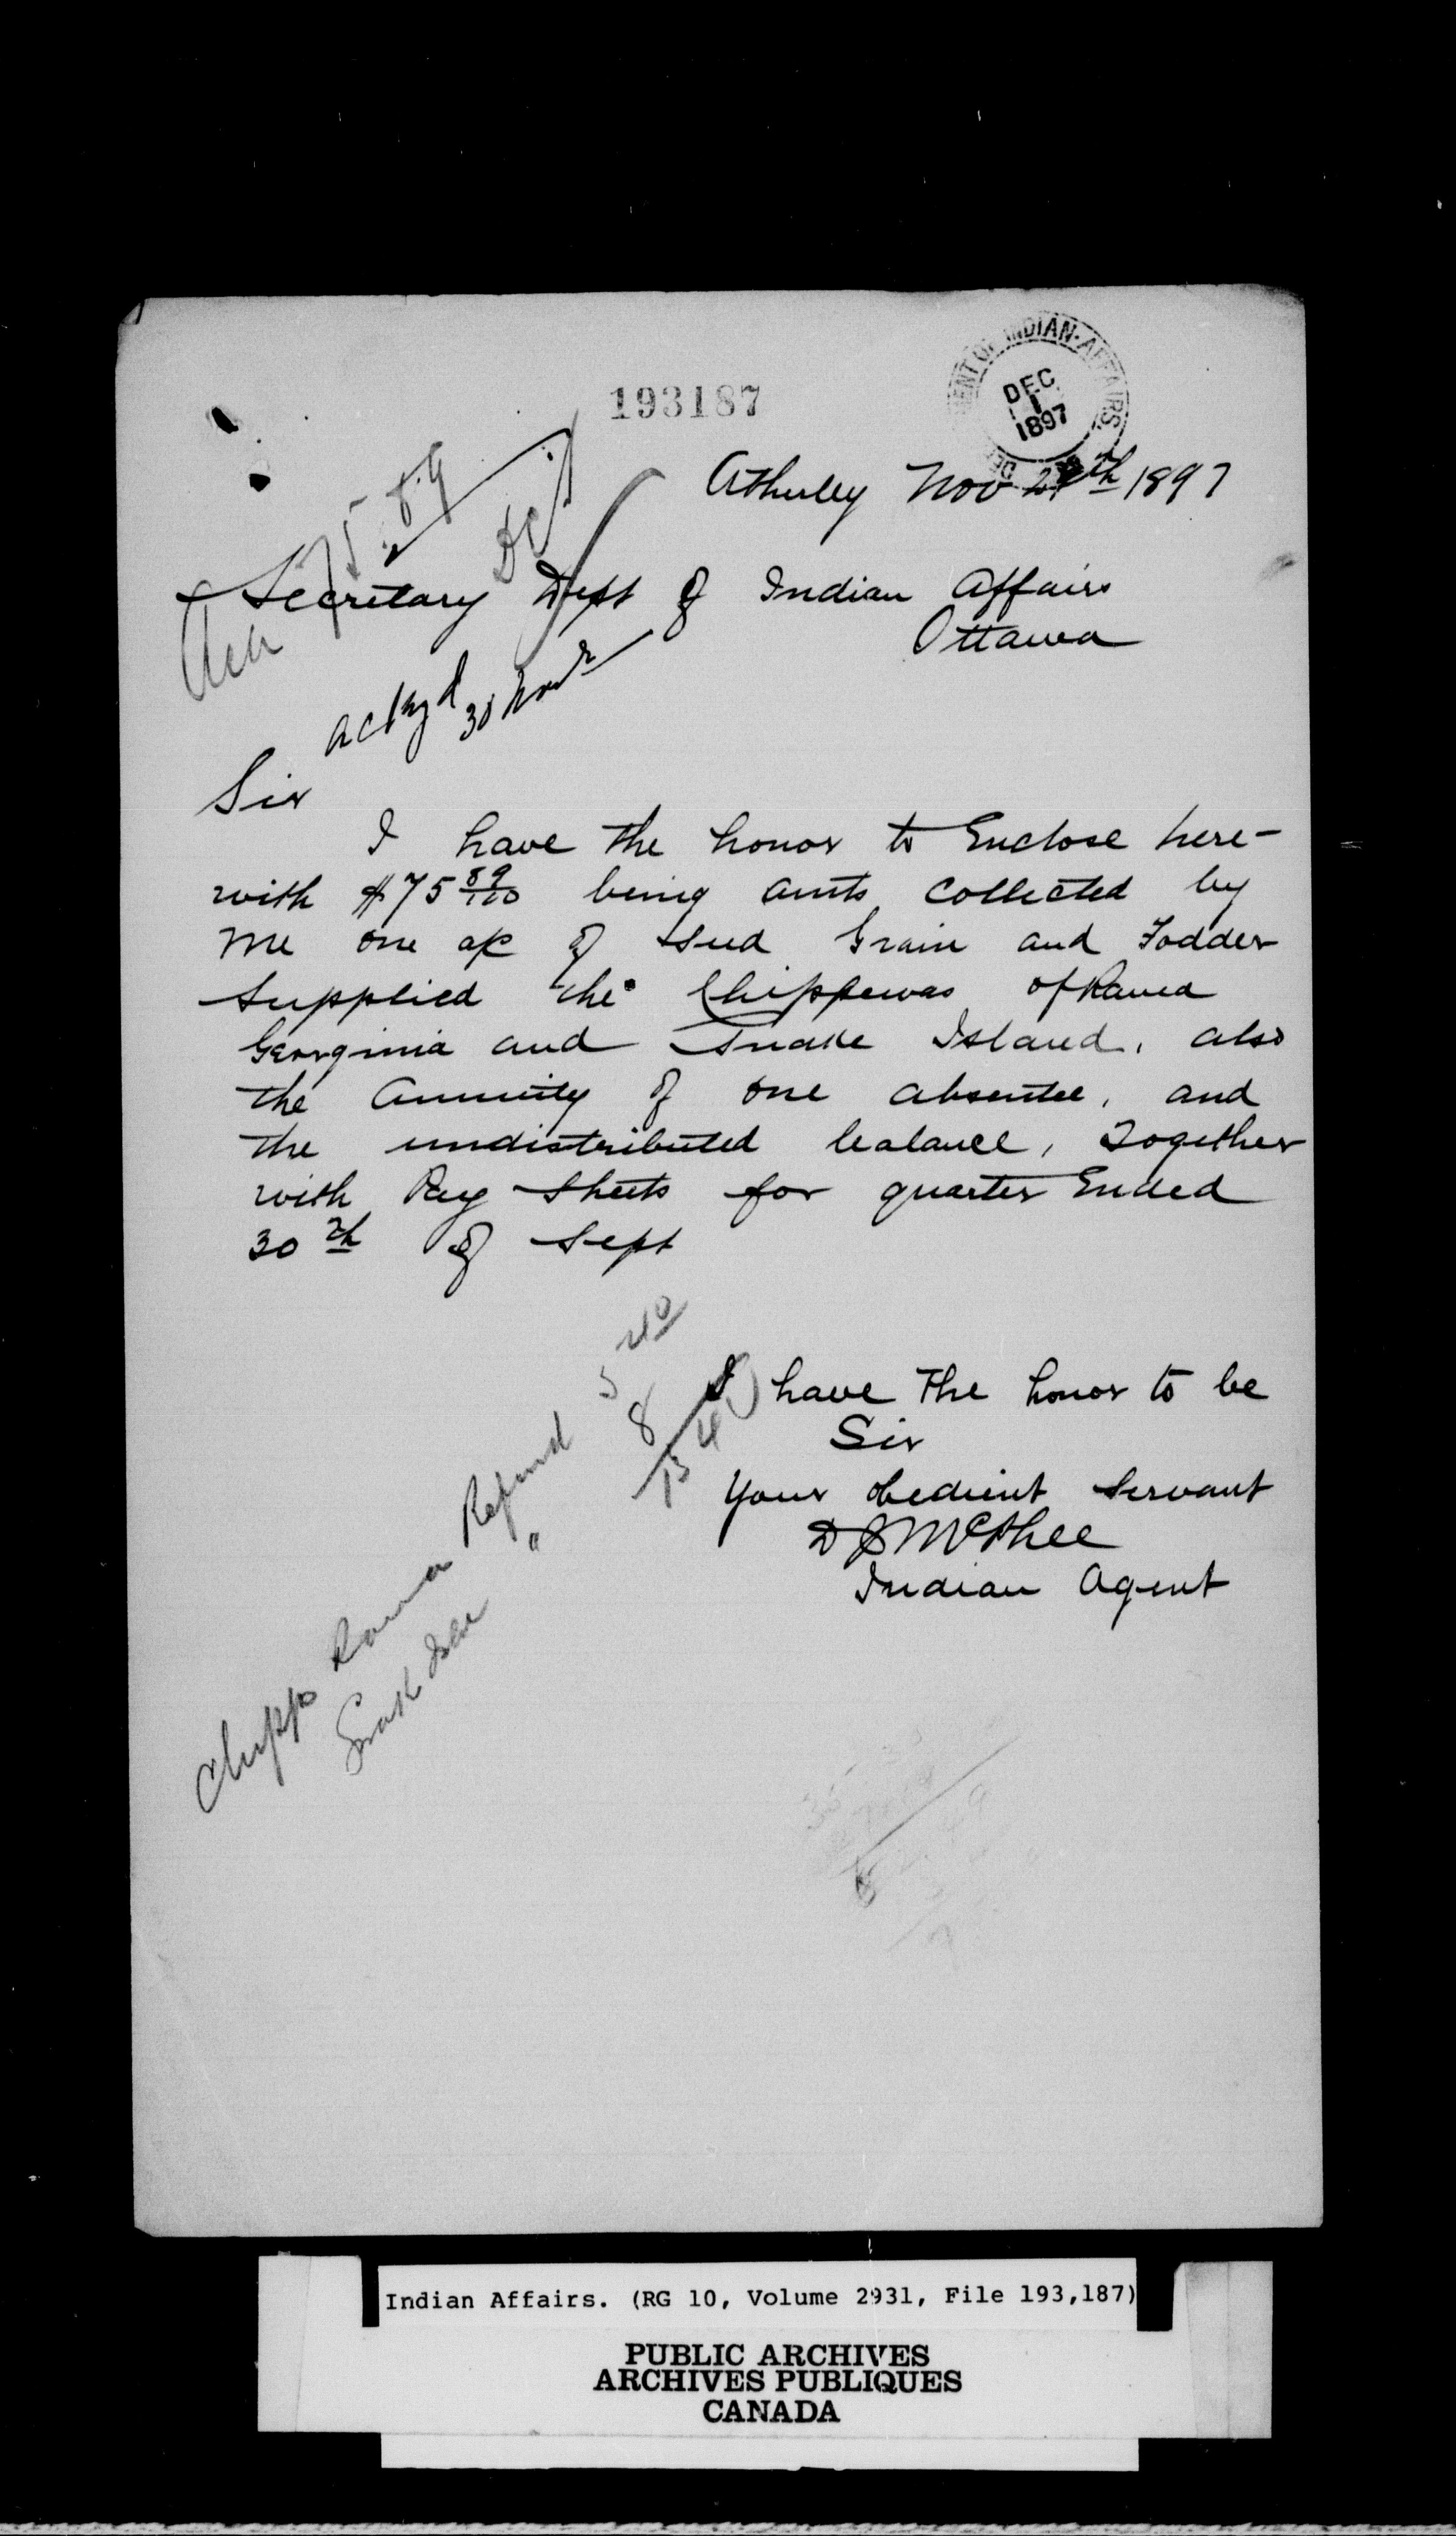 193187
DEPARTMENT OF INDIAN AFFAIRS.
DEC
1
1897
Atherley Nov th 1897
75.89
Secretary Dept of Indian Affairs
Ottawa
ackgd 30 Nov
Sir
I have the honor to Enclose here-
with $75 89/100 being amts collected by
me one a/c of seed Grain and Fodder
Supplied the Chippewas of Rama
Georginia and Snake Island, also
the Annuity of one absentee, and
the undistributed balance, Together
with Pay Sheets for quarter Ended
30th of Sept
I have the honor to be
Sir
Your obedient Servant
D J McPhee
Indian Agent
Chipp Rama Refund 5 40
Snake Isld " 8
13 40
Indian Affairs. (RG 10, Volume 2931, File 193,187)
PUBLIC ARCHIVES
ARCHIVES PUBLIQUES
CANADA